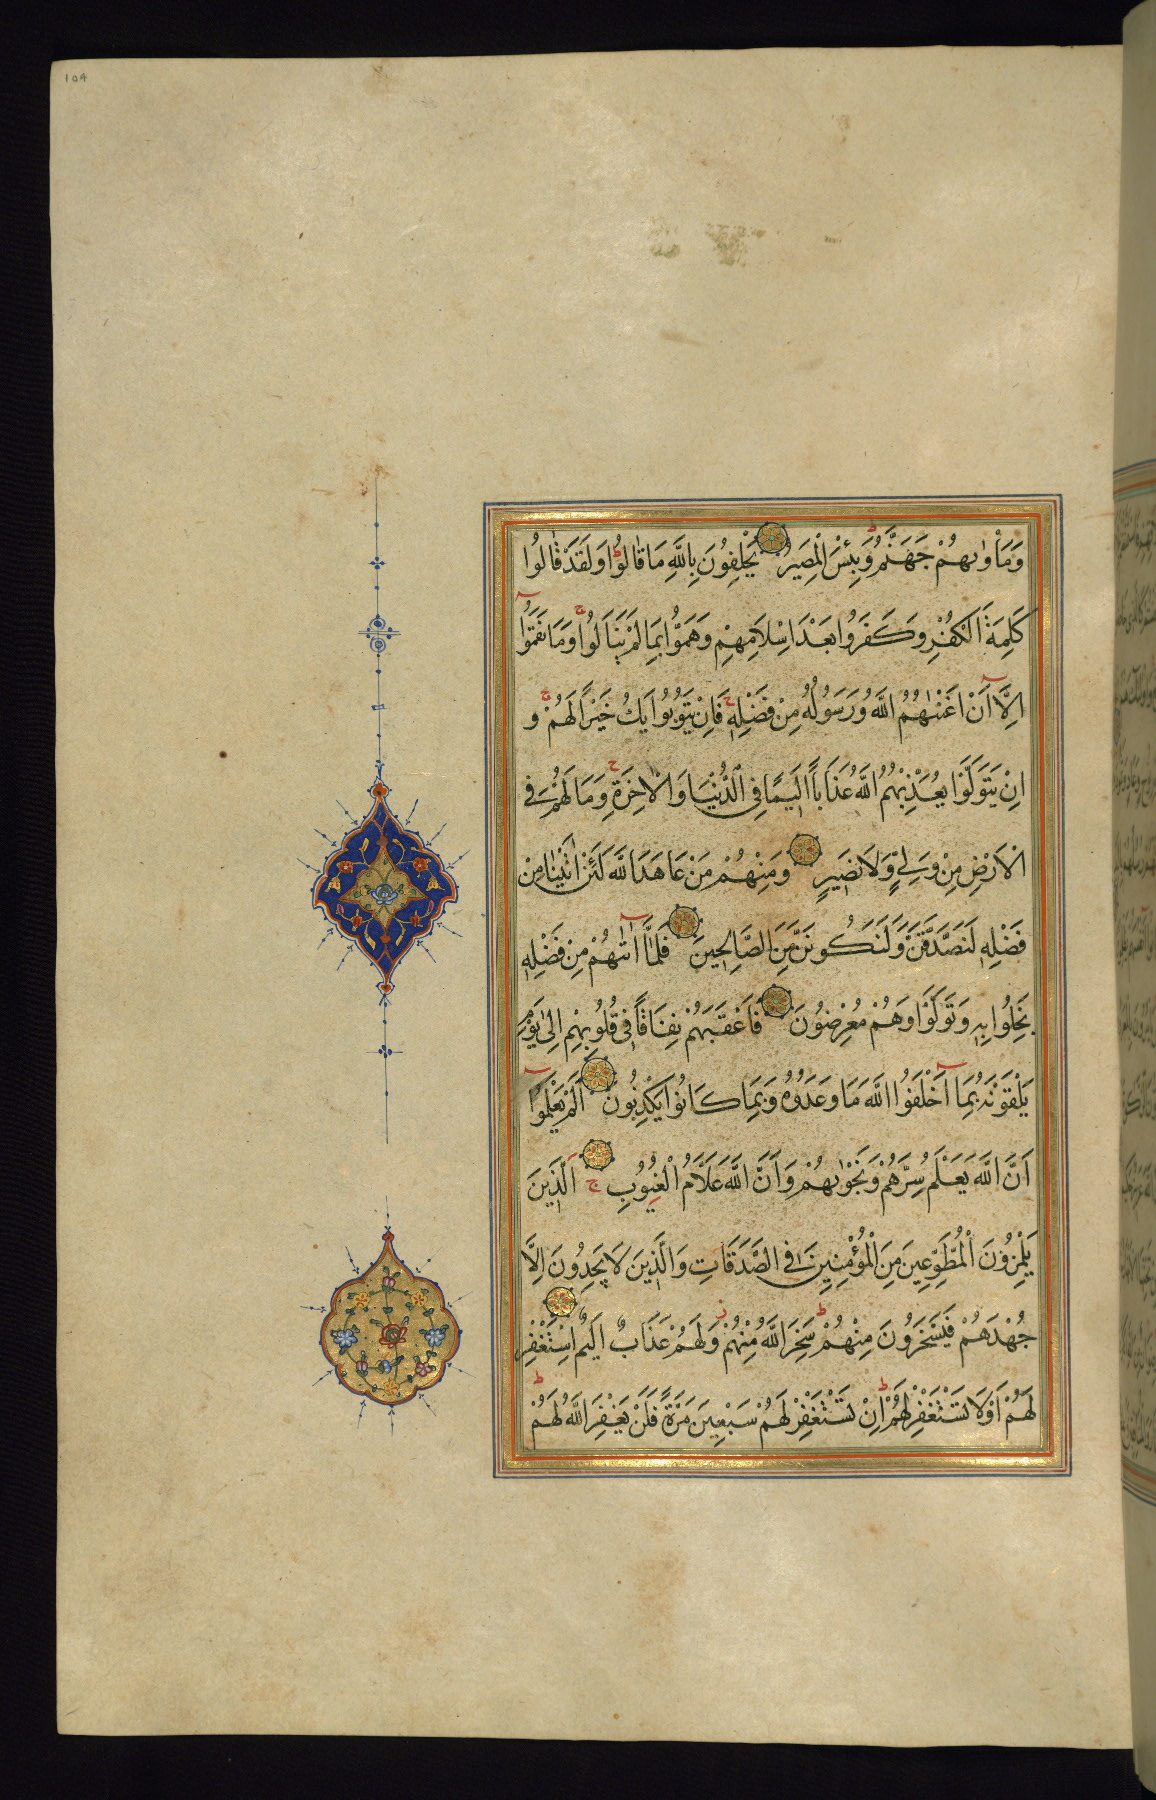 104
وَمَأْوٰىهُمْ جَهَنَّمُ وَبِئْسَ الْمَصِيرُ يَحْلِفُونَ بِاللَّهِ مَا قَالُوا وَلَقَدْ قَالُوا
كَلِمَةَ الْكُفْرِ وَكَفَرُوا بَعْدَ اِسْلَامِهِمْ وَهَمُّوا بِمَا لَمْ يَنَالُوا وَمَا نَقَمُوا
اِلَّا اَنْ اَغْنٰهُمُ اللَّهُ وَرَسُولُهُ مِنْ فَضْلِهِ فَاِنْ يَتُوبُوا يَكُ خَيْرًا لَهُمْ وَ
اِنْ يَتَوَلَّوْا يُعَذِّبْهُمُ اللَّهُ عَذَابًا اَلِيمًا فِي الدُّنْيَا وَالْاٰخِرَةِ وَمَا لَهُمْ فِي
الْاَرْضِ مِنْ وَلِيٍّ وَلَا نَصِيرٍ وَمِنْهُمْ مَنْ عَاهَدَ اللَّهَ لَئِنْ اٰتٰينَا مِنْ
فَضْلِهِ لَنَصَّدَّقَنَّ وَلَنَكُونَنَّ مِنَ الصَّالِحِينَ فَلَمَّا اٰتٰهُمْ مِنْ فَضْلِهِ
بَخِلُوا بِهِ وَتَوَلَّوْا وَهُمْ مُعْرِضُونَ فَاَعْقَبَهُمْ نِفَاقًا فِي قُلُوبِهِمْ اِلٰى يَوْمِ
يَلْقَوْنَهُ بِمَا اَخْلَفُوا اللَّهَ مَا وَعَدُوهُ وَبِمَا كَانُوا يَكْذِبُونَ اَلَمْ يَعْلَمُوا
اَنَّ اللَّهَ يَعْلَمُ سِرَّهُمْ وَنَجْوٰىهُمْ وَاَنَّ اللَّهَ عَلَّامُ الْغُيُوبِ اَلَّذِينَ
يَلْمِزُونَ الْمُطَّوِّعِينَ مِنَ الْمُؤْمِنِينَ فِي الصَّدَقَاتِ وَالَّذِينَ لَا يَجِدُونَ اِلَّا
جُهْدَهُمْ فَيَسْخَرُونَ مِنْهُمْ سَخِرَ اللَّهُ مِنْهُمْ وَلَهُمْ عَذَابٌ اَلِيمٌ اِسْتَغْفِرْ
لَهُمْ اَوْ لَا تَسْتَغْفِرْ لَهُمْ اِنْ تَسْتَغْفِرْ لَهُمْ سَبْعِينَ مَرَّةً فَلَنْ يَغْفِرَ اللَّهُ لَهُمْ